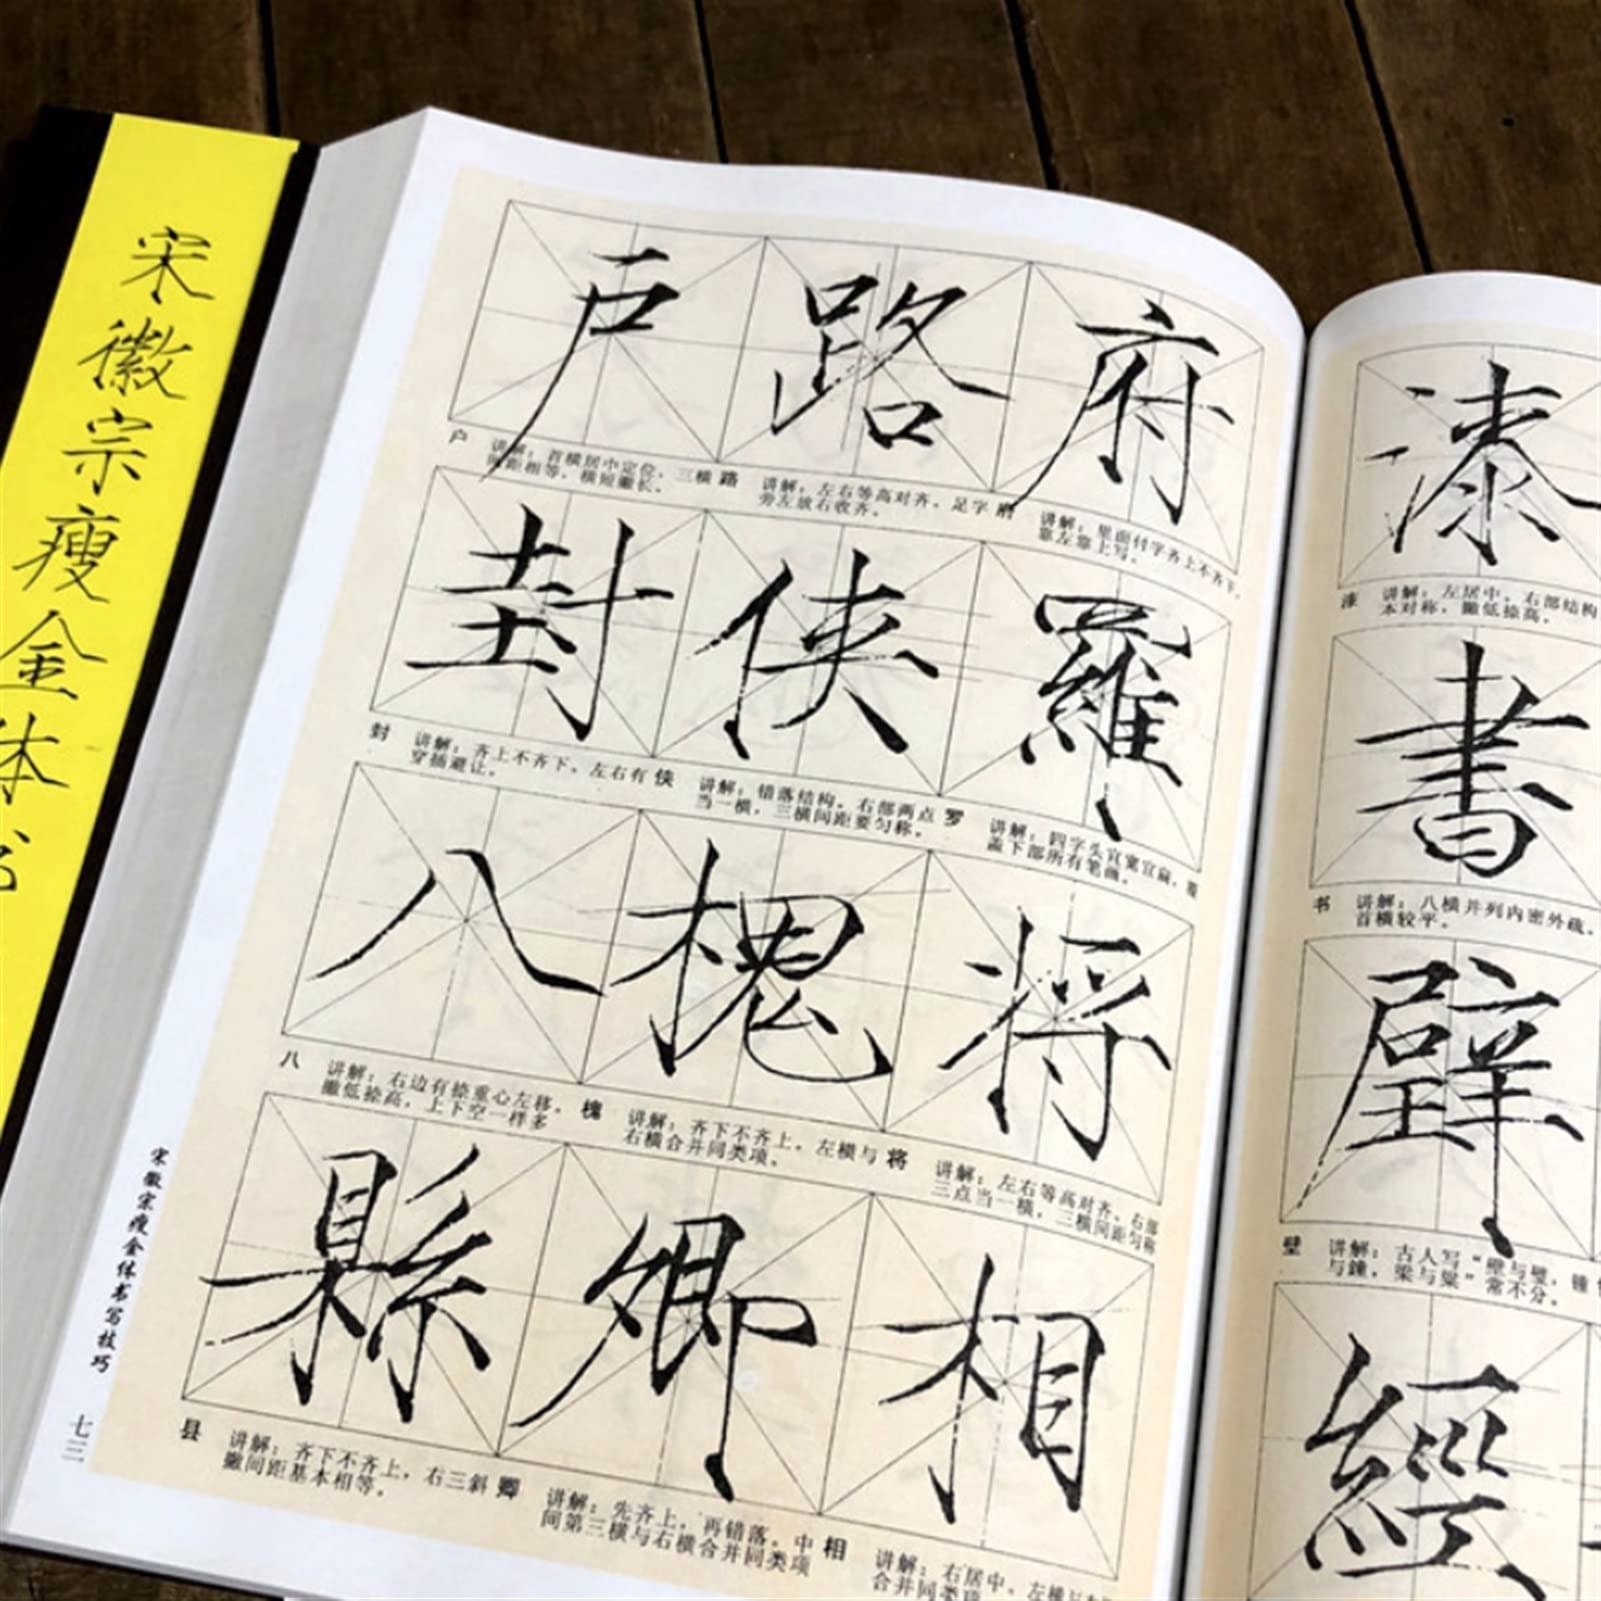 宋徽宗瘦金体书
户 路 府
户 讲解：首横居中定位，三横
间距相等，横短撇长。
路 讲解：左右等高对齐，足字
旁左放右收齐。
府 讲解：里面付字齐上不齐下，
靠左靠上写。
封 侠 羅
封 讲解：齐上不齐下，左右有
穿插避让。
侠 讲解：错落结构，右部两点
当一横，三横间距要匀称。
罗 讲解：四字头宜宽宜扁，覆
盖下部所有笔画。
八 槐 将
八 讲解：右边有捺重心左移，
撇低捺高，上下空一样多
槐 讲解：齐下不齐上，左横与
右横合并同类项。
将 讲解：左右等高对齐，右部
三点当一横，二横间距匀称
縣 卿 相
县 讲解：齐下不齐上，右三斜
撇间距基本相等。
卿 讲解：先齐上，再错落，中
间第三横与右横合并同类项
相 讲解：右居中，左横与
合并同类项
宋徽宗瘦金体书写技巧
七三
漆
漆 讲解：左居中，右部结构
本对称，撇低捺高。
書
书 讲解：八横并列内密外疏，
首横较平。
壁
壁 讲解：古人写“壁与璧，锺
与鐘，梁与粱”常不分。
經